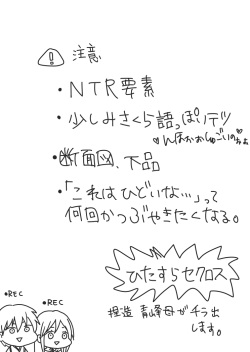 ⚠ 注意
・NTR要素
・少しみさくら語っぽいデツ
♡んほかおしゅごいのぉぉ
・断面図、下品
・「これはひどいな…」って
何回かつぶやきたくなる。
ひたすらセクロス
捏造青峰母がチラ出
します。
●REC
●REC